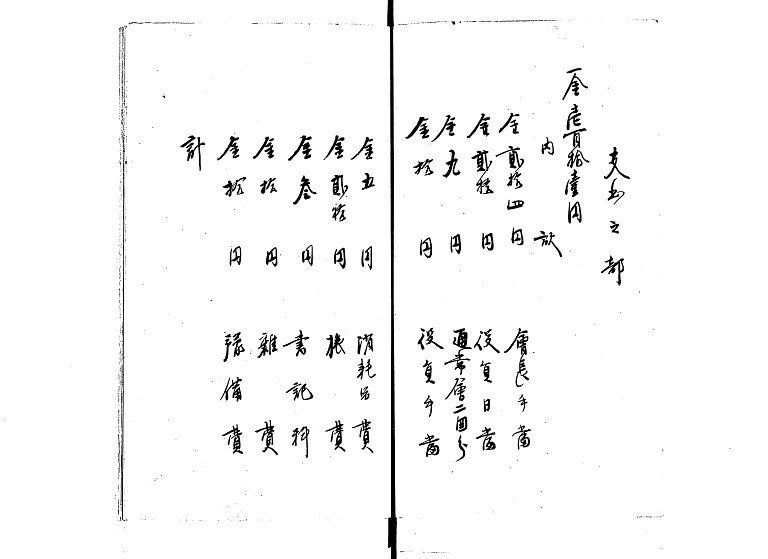 支出之部
一金壱百拾壱円
内訳
金貳拾四円 會長手當
金貳拾円 役員日當
金九円 通常會二回分
金拾円 役員手當
金五円 消耗品費
金貳拾円 費
金参円 書記料
金拾円 雑費
金拾円 豫備費
計